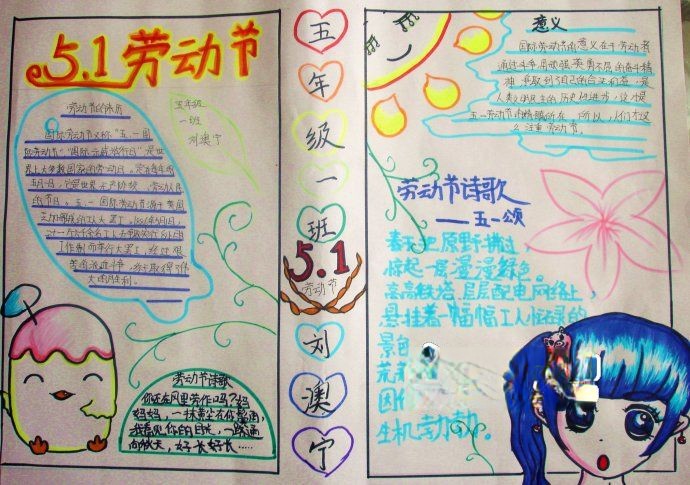 5.1劳动节
劳动节的来历
五年级
一班
刘澳宁
国际劳动节又称“五一国
际劳动节”“国际示威游行日”是世
界上大多数国家的劳动节。定在每年的
五月一日。它是世界无产阶级、劳动人民
的节日。五一国际劳动节源于美国
芝加哥城的工人大罢工。
工作制而举行大罢工，经过艰
苦的流血斗争，终于取得了伟
大的胜利。
劳动节诗歌
你还在风里劳作吗？妈
妈妈，一抹
我看见你的目光，一路通
向秋天，好长好长……
五
年
级
一
班
5.1
劳动节
刘
澳
宁
意义
国际劳动节的意义在于劳动者
通过斗争，用顽强、英勇不屈的奋斗精
神，争取到了自己的合法权益，是
人类文明民主的历史性进步，这才是
五一劳动节的精髓所在。所以，人们才这
么注重劳动节。
劳动节诗歌
——五一颂
春天把原野拂过，
惊起一层漫漫绿色
高高铁塔，层层配电网络上，
悬挂着一幅幅工人忙碌的
景
荒
因
生机勃勃。